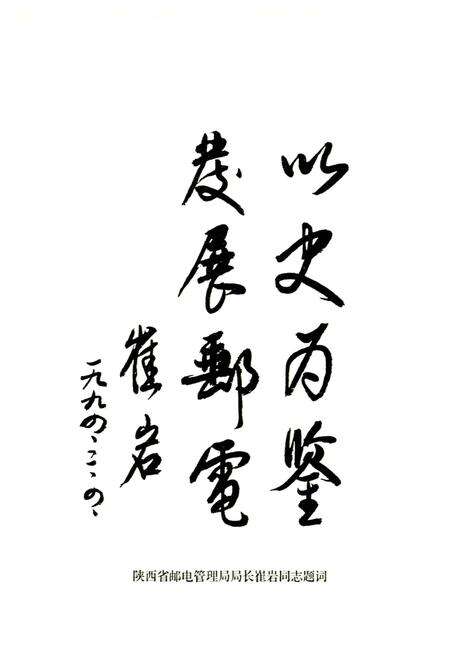 以史为鉴
发展郵電
崔岩
一九九四、二、四、
陕西省邮电管理局局长崔岩同志题词